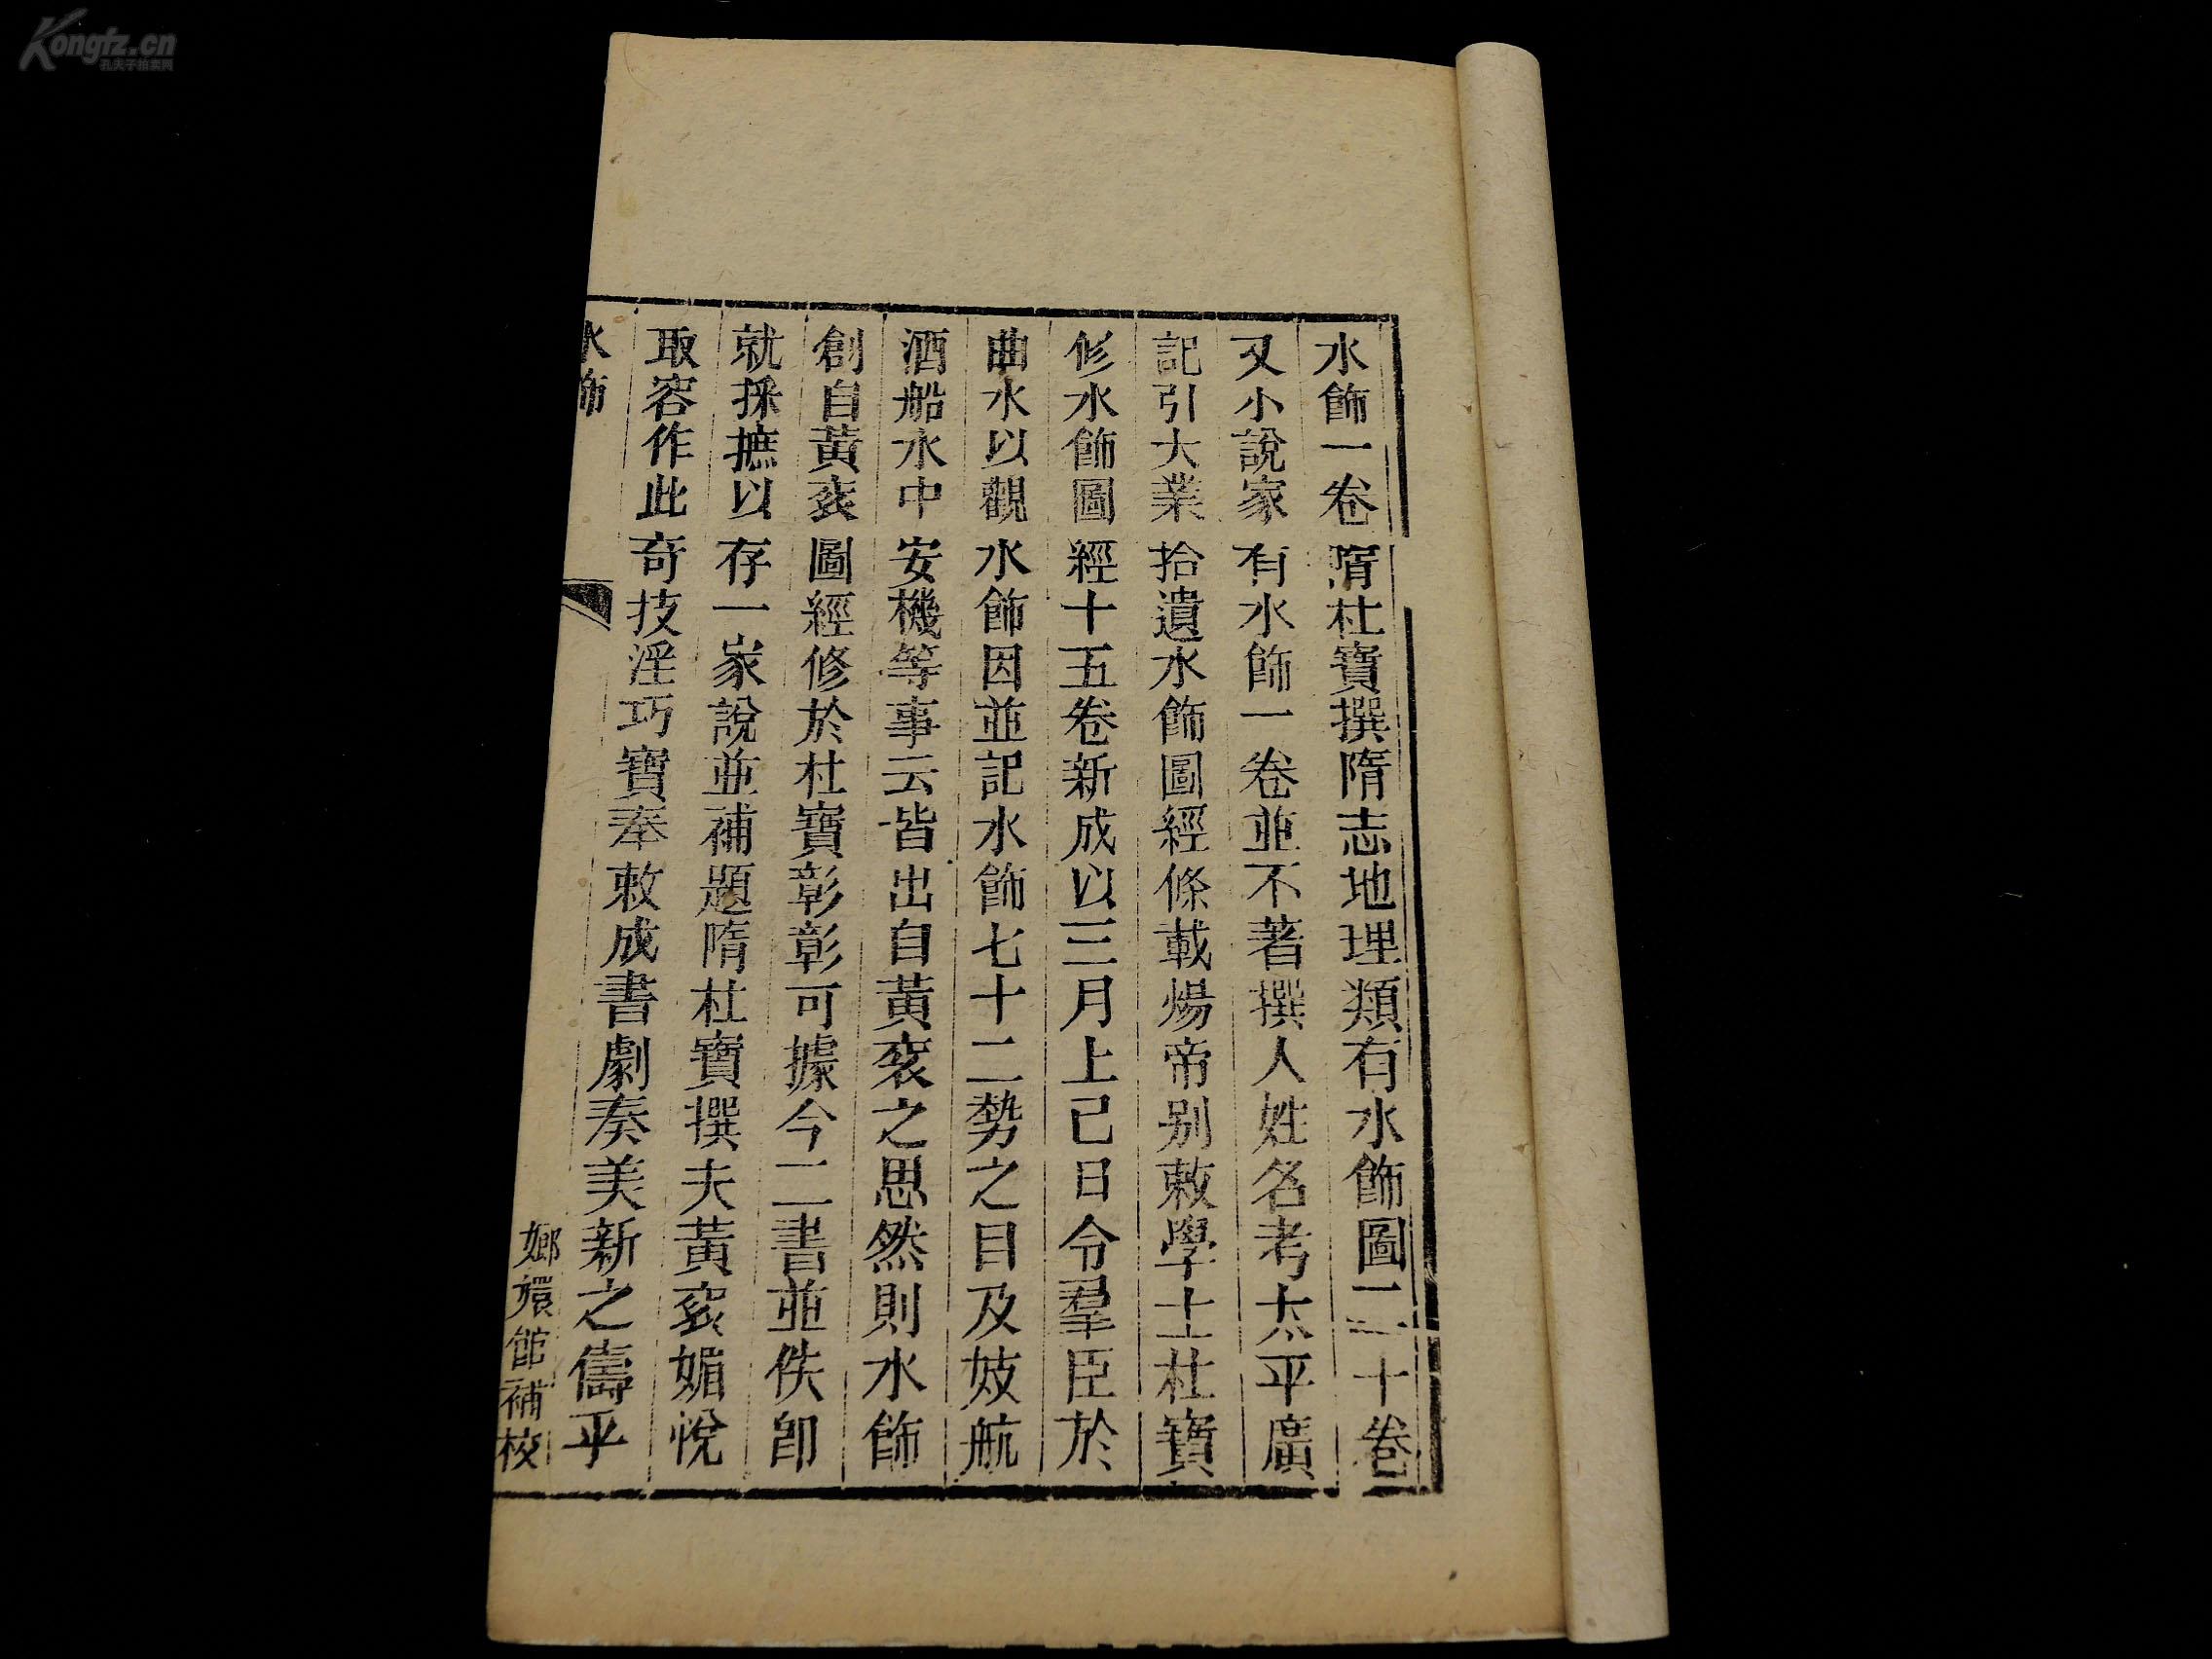 水飾一卷隋杜寶撰隋志地理類有水飾圖二十卷
又小說家有水飾一卷並不著撰人姓名考太平廣
記引大業拾遺水飾圖經條載煬帝別敕學士杜寶
修水飾圖經十五卷新成以三月上己日令羣臣於
曲水以觀水飾因並記水飾七十二勢之目及妓航
酒船水中安機等事云皆出自黃袞之思然則水飾
創自黃袞圖經修於杜寶彰彰可據今二書並佚卽
就採摭以存一家說並補題隋杜寶撰夫黃袞媚悅
取容作此奇技淫巧寶奉敕成書劇奏美新之儔乎
水飾
嫏嬛館補校
Kongfz.cn
孔夫子拍卖网